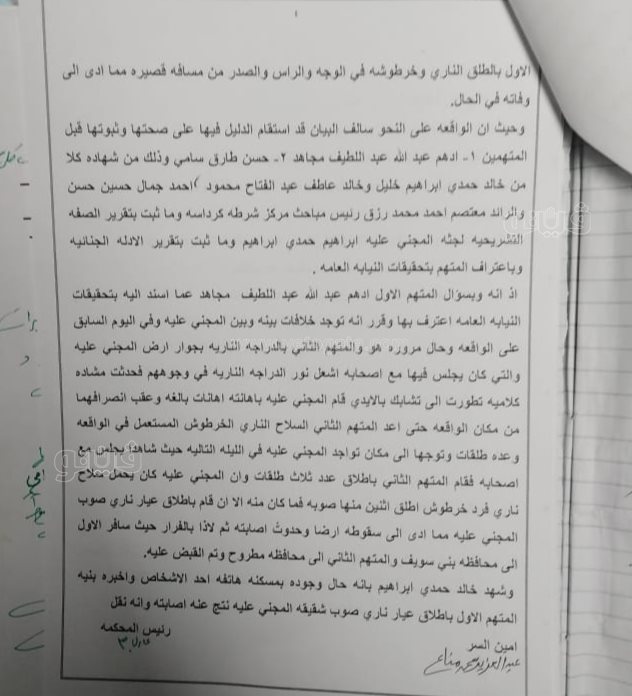 ١
الاول بالطلق الناري وخرطوشه في الوجه والراس والصدر من مسافه قصيره مما ادى الى
وفاته في الحال.
وحيث ان الواقعه على النحو سالف البيان قد استقام الدليل فيها على صحتها وثبوتها قبل
المتهمين ١- ادهم عبد الله عبد اللطيف مجاهد ٢- حسن طارق سامي وذلك من شهاده كلا
من خالد حمدي ابراهيم خليل وخالد عاطف عبد الفتاح محمود /احمد جمال حسين حسن
والرائد معتصم احمد محمد رزق رئيس مباحث مركز شرطه كرداسه وما ثبت بتقرير الصفه
التشريحيه لجثه المجني عليه ابراهيم حمدي ابراهيم وما ثبت بتقرير الادله الجنائيه
وباعتراف المتهم بتحقيقات النيابه العامه .
اذ انه وبسؤال المتهم الاول ادهم عبد الله عبد اللطيف مجاهد عما اسند اليه بتحقيقات
النيابه العامه اعترف بها وقرر انه توجد خلافات بينه وبين المجني عليه وفي اليوم السابق
على الواقعه وحال مروره هو والمتهم الثاني بالدراجه الناريه بجوار ارض المجني عليه
والتي كان يجلس فيها مع اصحابه اشعل نور الدراجه الناريه في وجوههم فحدثت مشاده
كلاميه تطورت الى تشابك بالايدي قام المجني عليه باهانته اهانات بالغه وعقب انصرافهما
من مكان الواقعه حتى اعد المتهم الثاني السلاح الناري الخرطوش المستعمل في الواقعه
وعده طلقات وتوجها الى مكان تواجد المجني عليه في الليله التاليه حيث شاهدا يجلس مع
اصحابه فقام المتهم الثاني باطلاق عدد ثلاث طلقات وان المجني عليه كان يحمل سلاح
ناري فرد خرطوش اطلق اثنين منها صوبه فما كان منه الا ان قام باطلاق عيار ناري صوب
المجني عليه مما ادى الى سقوطه ارضا وحدوث اصابته ثم لاذا بالفرار حيث سافر الاول
الى محافظه بني سويف والمتهم الثاني الى محافظه مطروح وتم القبض عليه.
وشهد خالد حمدي ابراهيم بانه حال وجوده بمسكنه هاتفه احد الاشخاص واخبره بنيه
المتهم الاول باطلاق عيار ناري صوب شقيقه المجني عليه نتج عنه اصابته وانه نقل
امين السر
رئيس المحكمه
فيتو